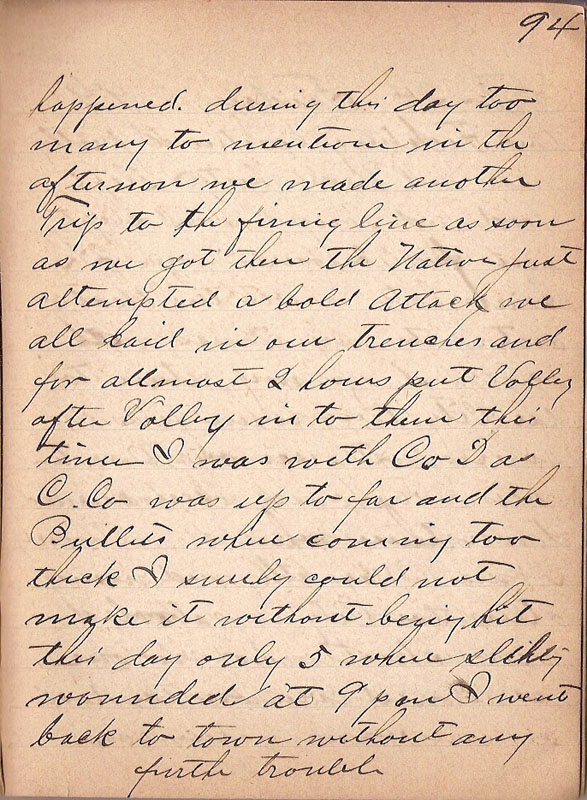 94
happened. during this day too
many to mention in the
afternon we made another
Trip to the firing line as soon
as we got then the Native just
attempted a bold Attack we
all laid in our trenches and
for allmost 2 hours put Volley
after Volley in to them this
time I was with Co D as
C. Co was up to far and the
Bullets where coming too
thick I surely could not
make it without being hit
this day only 5 where slikly
wounded at 9 pm I went
back to town without any
furth trouble